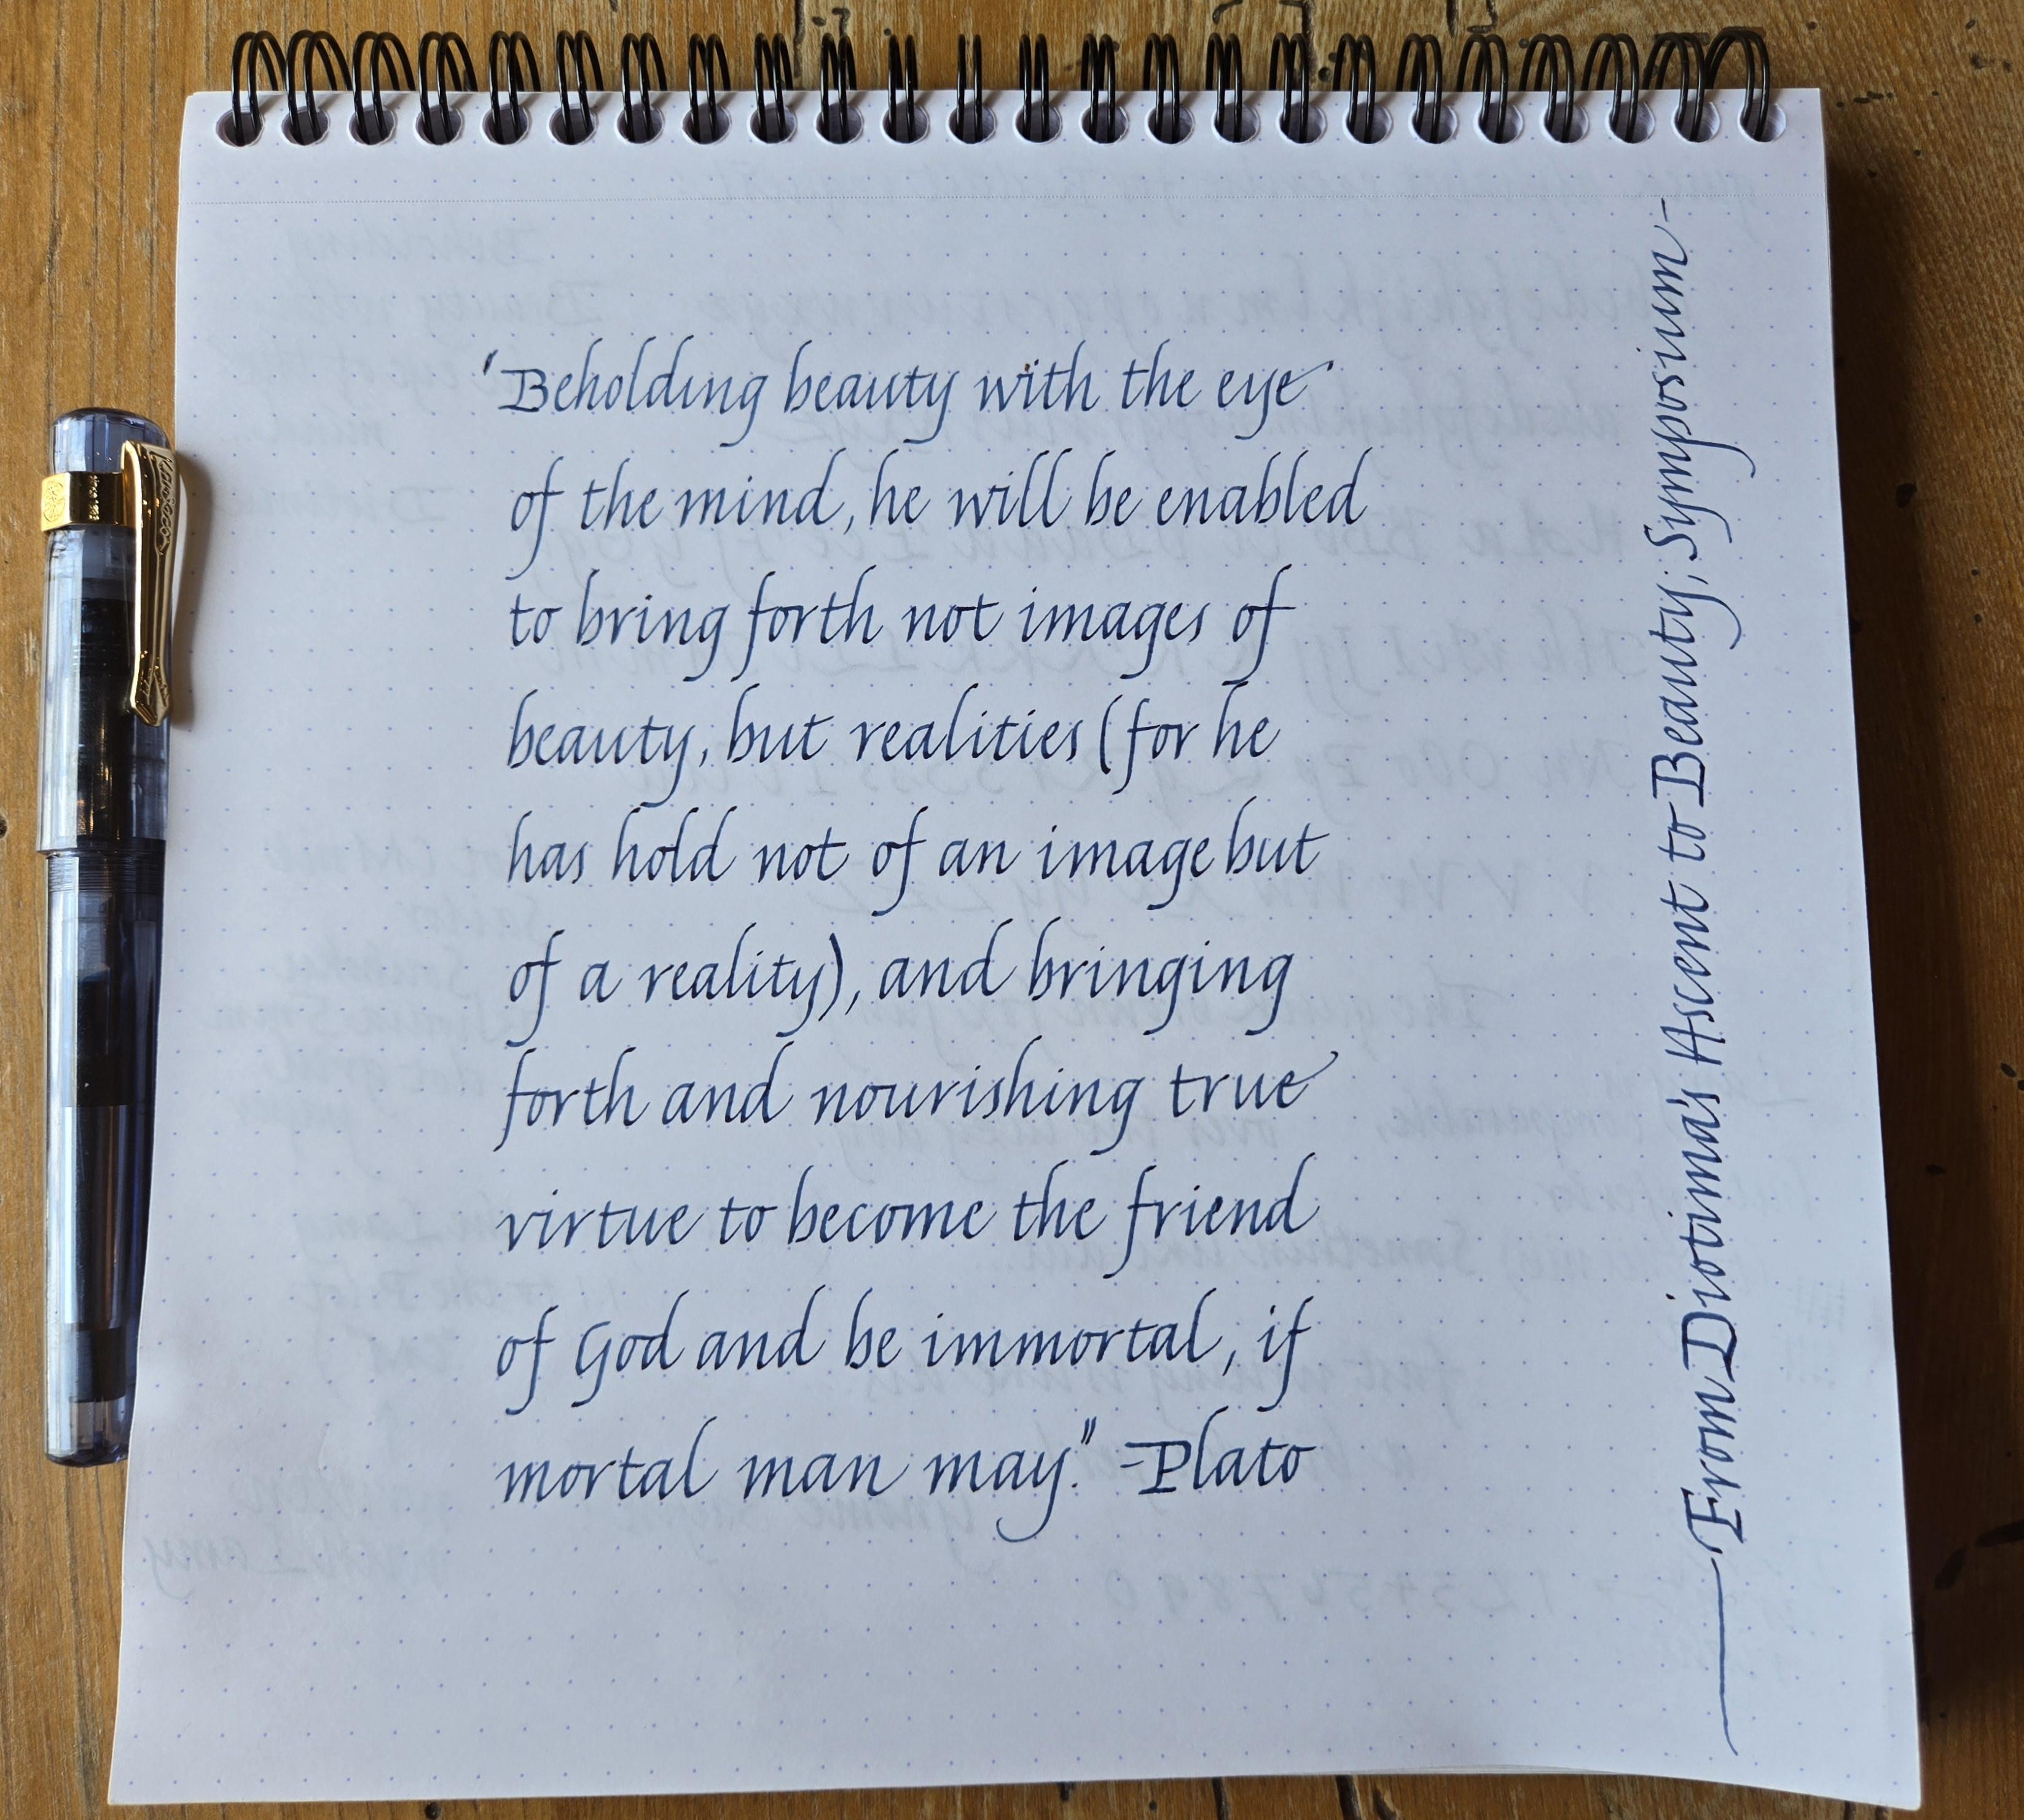 'Beholding beauty with the eye
of the mind, he will be enabled
to bring forth not images of
beauty, but realities (for he
has hold not of an image but
of a reality), and bringing
forth and nourishing true
virtue to become the friend
of God and be immortal, if
mortal man may." -Plato
— From Diotima's Ascent to Beauty; Symposium -